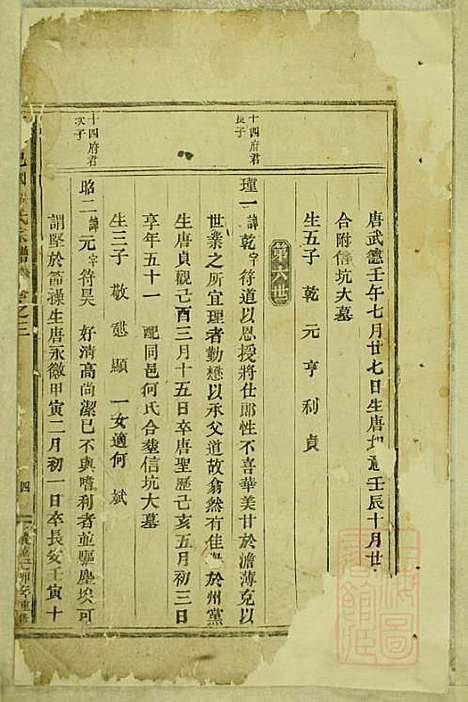 唐武德壬午七月廿七日生唐壬辰十月廿
合附信坑大墓
生五子 乾 元 亨 利 貞
第六世
十四府君長子
瑾一 諱乾 字符道以恩授將仕郎性不喜華美甘於澹薄克以
世業之所宜理者勤懋以承父道故翕然有佳於州黨
生唐貞觀己酉三月十五日卒唐聖歷己亥五月初三日
享年五十一 配同邑何氏合塟信坑大墓
生三子 敬 顯 一女適何斌
十四府君次子
昭二 諱元 字符昊 好清高尚潔已不與嗜利者並驅塵埃可
謂堅於節操生唐永徽甲寅二月初一日卒長安壬寅十
四